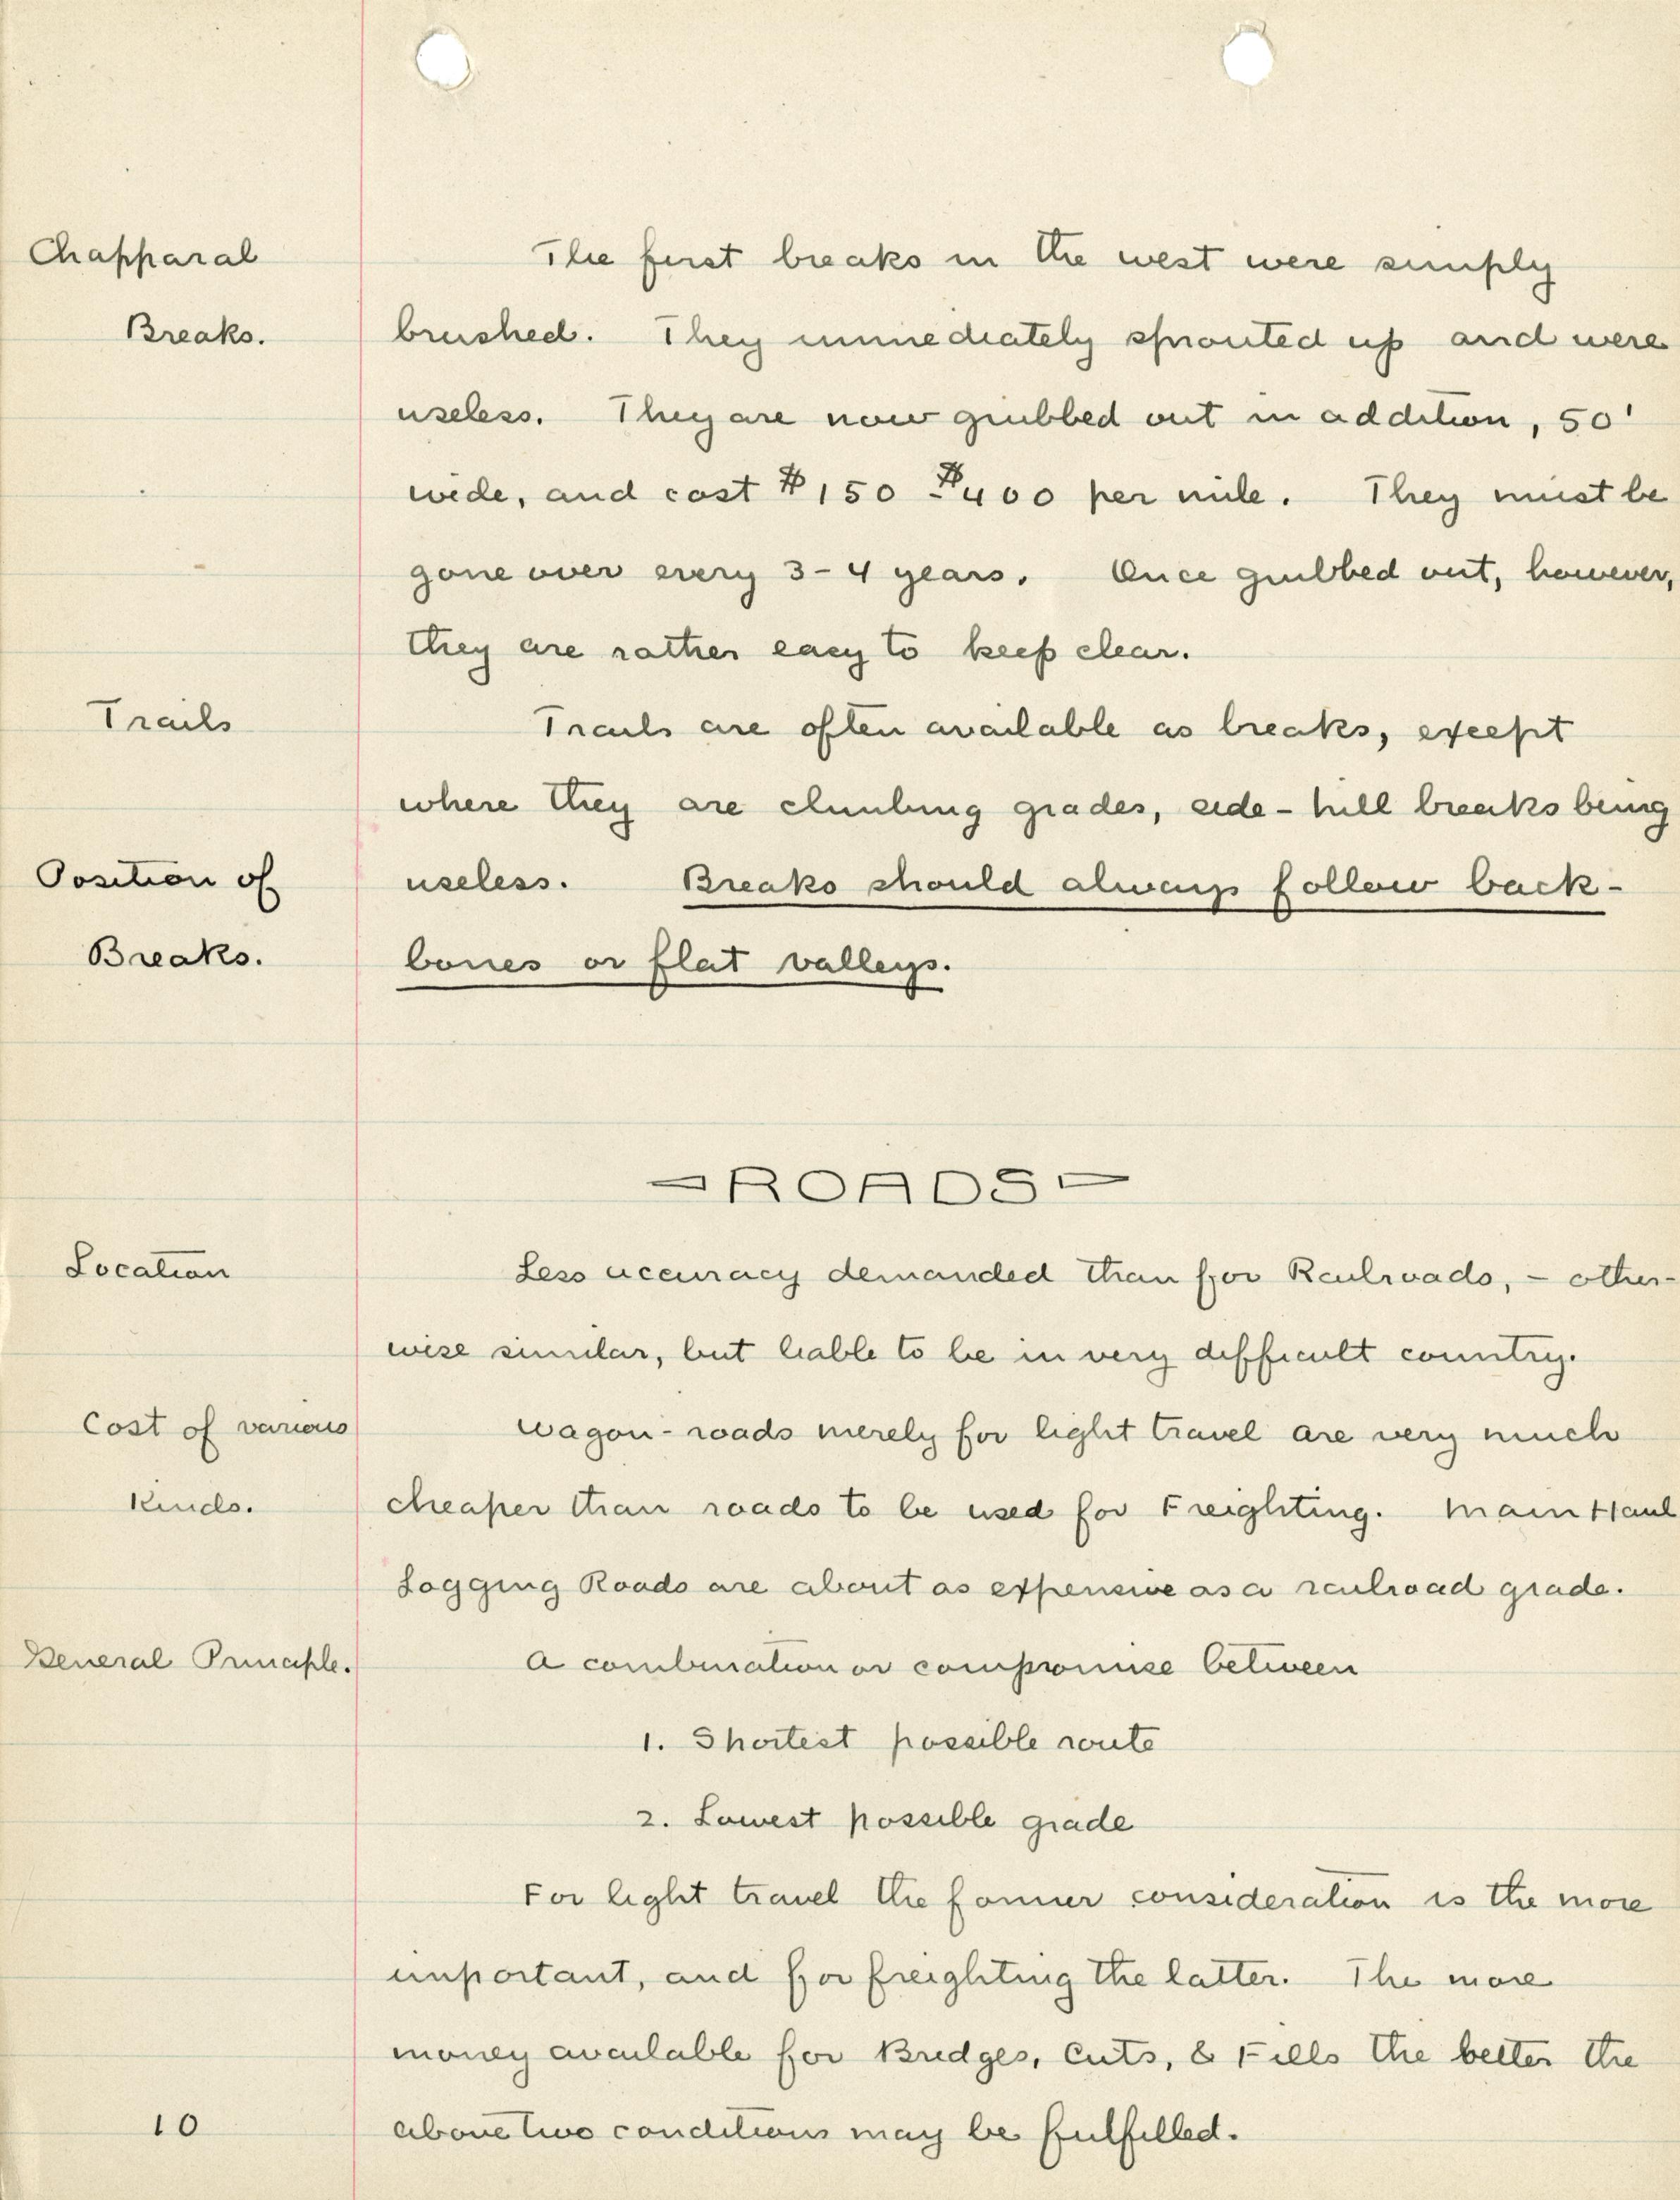 Chapparal The first breaks in the west were simply
Breaks. brushed. They immediately sprouted up and were
useless. They are now grubbed out in addition, 50'
wide, and cost $150 - $400 per mile. They must be
gone over every 3-4 years. Once grubbed out, however,
they are rather easy to keep clear.
Trails Trails are often available as breaks, except
where they are climbing grades, side-hill breaks being
Position of useless. Breaks should always follow back-
Breaks. bones or flat valleys.
= ROADS =
Location Less accuracy demanded than for Railroads, - other-
wise similar, but liable to be in very difficult country.
Cost of various Wagon-roads merely for light travel are very much
Kinds. cheaper than roads to be used for Freighting. Main Haul
Logging Roads are about as expensive as a railroad grade.
General Principle. A combination or compromise between
1. Shortest possible route
2. Lowest possible grade
For light travel the former consideration is the more
important, and for freighting the latter. The more
money available for Bridges, Cuts, & Fills the better the
10 above two conditions may be fulfilled.